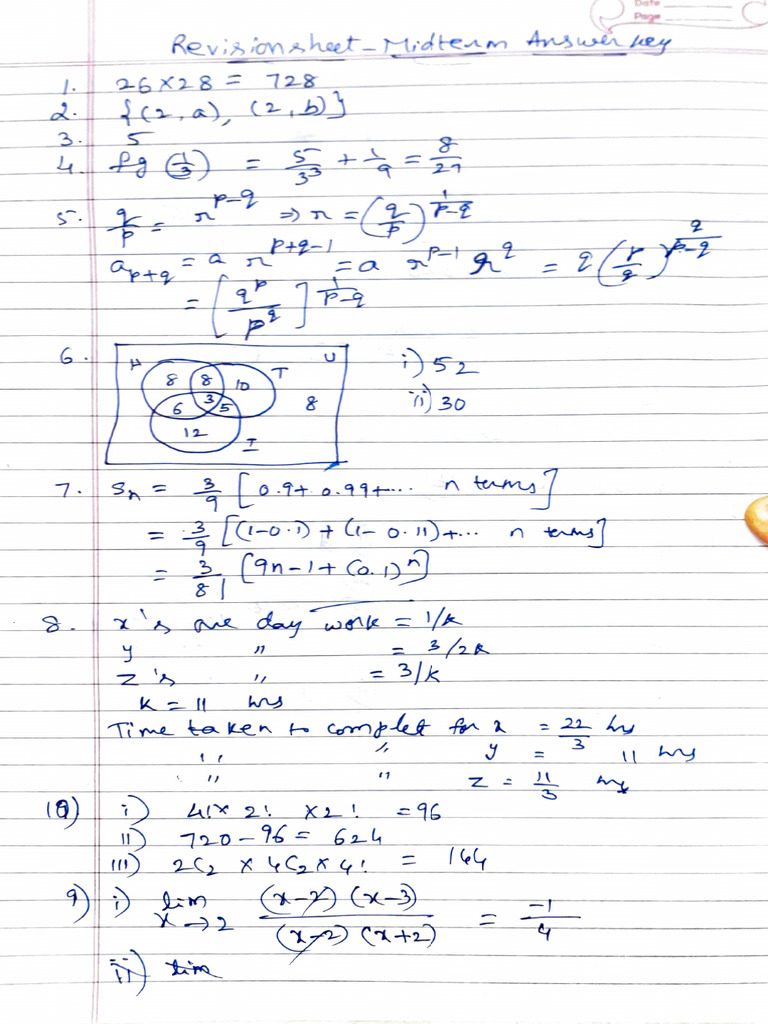 Date
Page
Revision sheet - Midterm Answer key
1. 26 × 28 = 728
2. {(2, a), (2, b)}
3. 5
4. fg (1/3) = 5/3³ + 1/9 = 8/27
5. q/p = r^(p-q) ⇒ r = (q/p)^(1/(p-q))
a_(p+q) = a r^(p+q-1) = a r^(p-1) r^q = q (p/q)^(q/(p-q))
= [q^p / p^q]^(1/(p-q))
6. H 8 8 10 T U 6 3 5 8 12 I
i) 52
ii) 30
7. Sn = 3/9 [0.9 + 0.99 + ... n terms]
= 3/9 [(1-0.1) + (1-0.11) + ... n terms]
= 3/81 [9n - 1 + (0.1)^n]
8. x's one day work = 1/k
y " = 3/2k
z's " = 3/k
k = 11 hrs
Time taken to complet for x = 22/3 hs
" " y = 11 hrs
" " z = 11/3 hrs
10) i) 4! × 2! × 2! = 96
ii) 720 - 96 = 624
iii) 2C2 × 4C2 × 4! = 144
9) i) lim x→2 (x-2)(x-3) / (x-2)(x+2) = -1/4
ii) lim